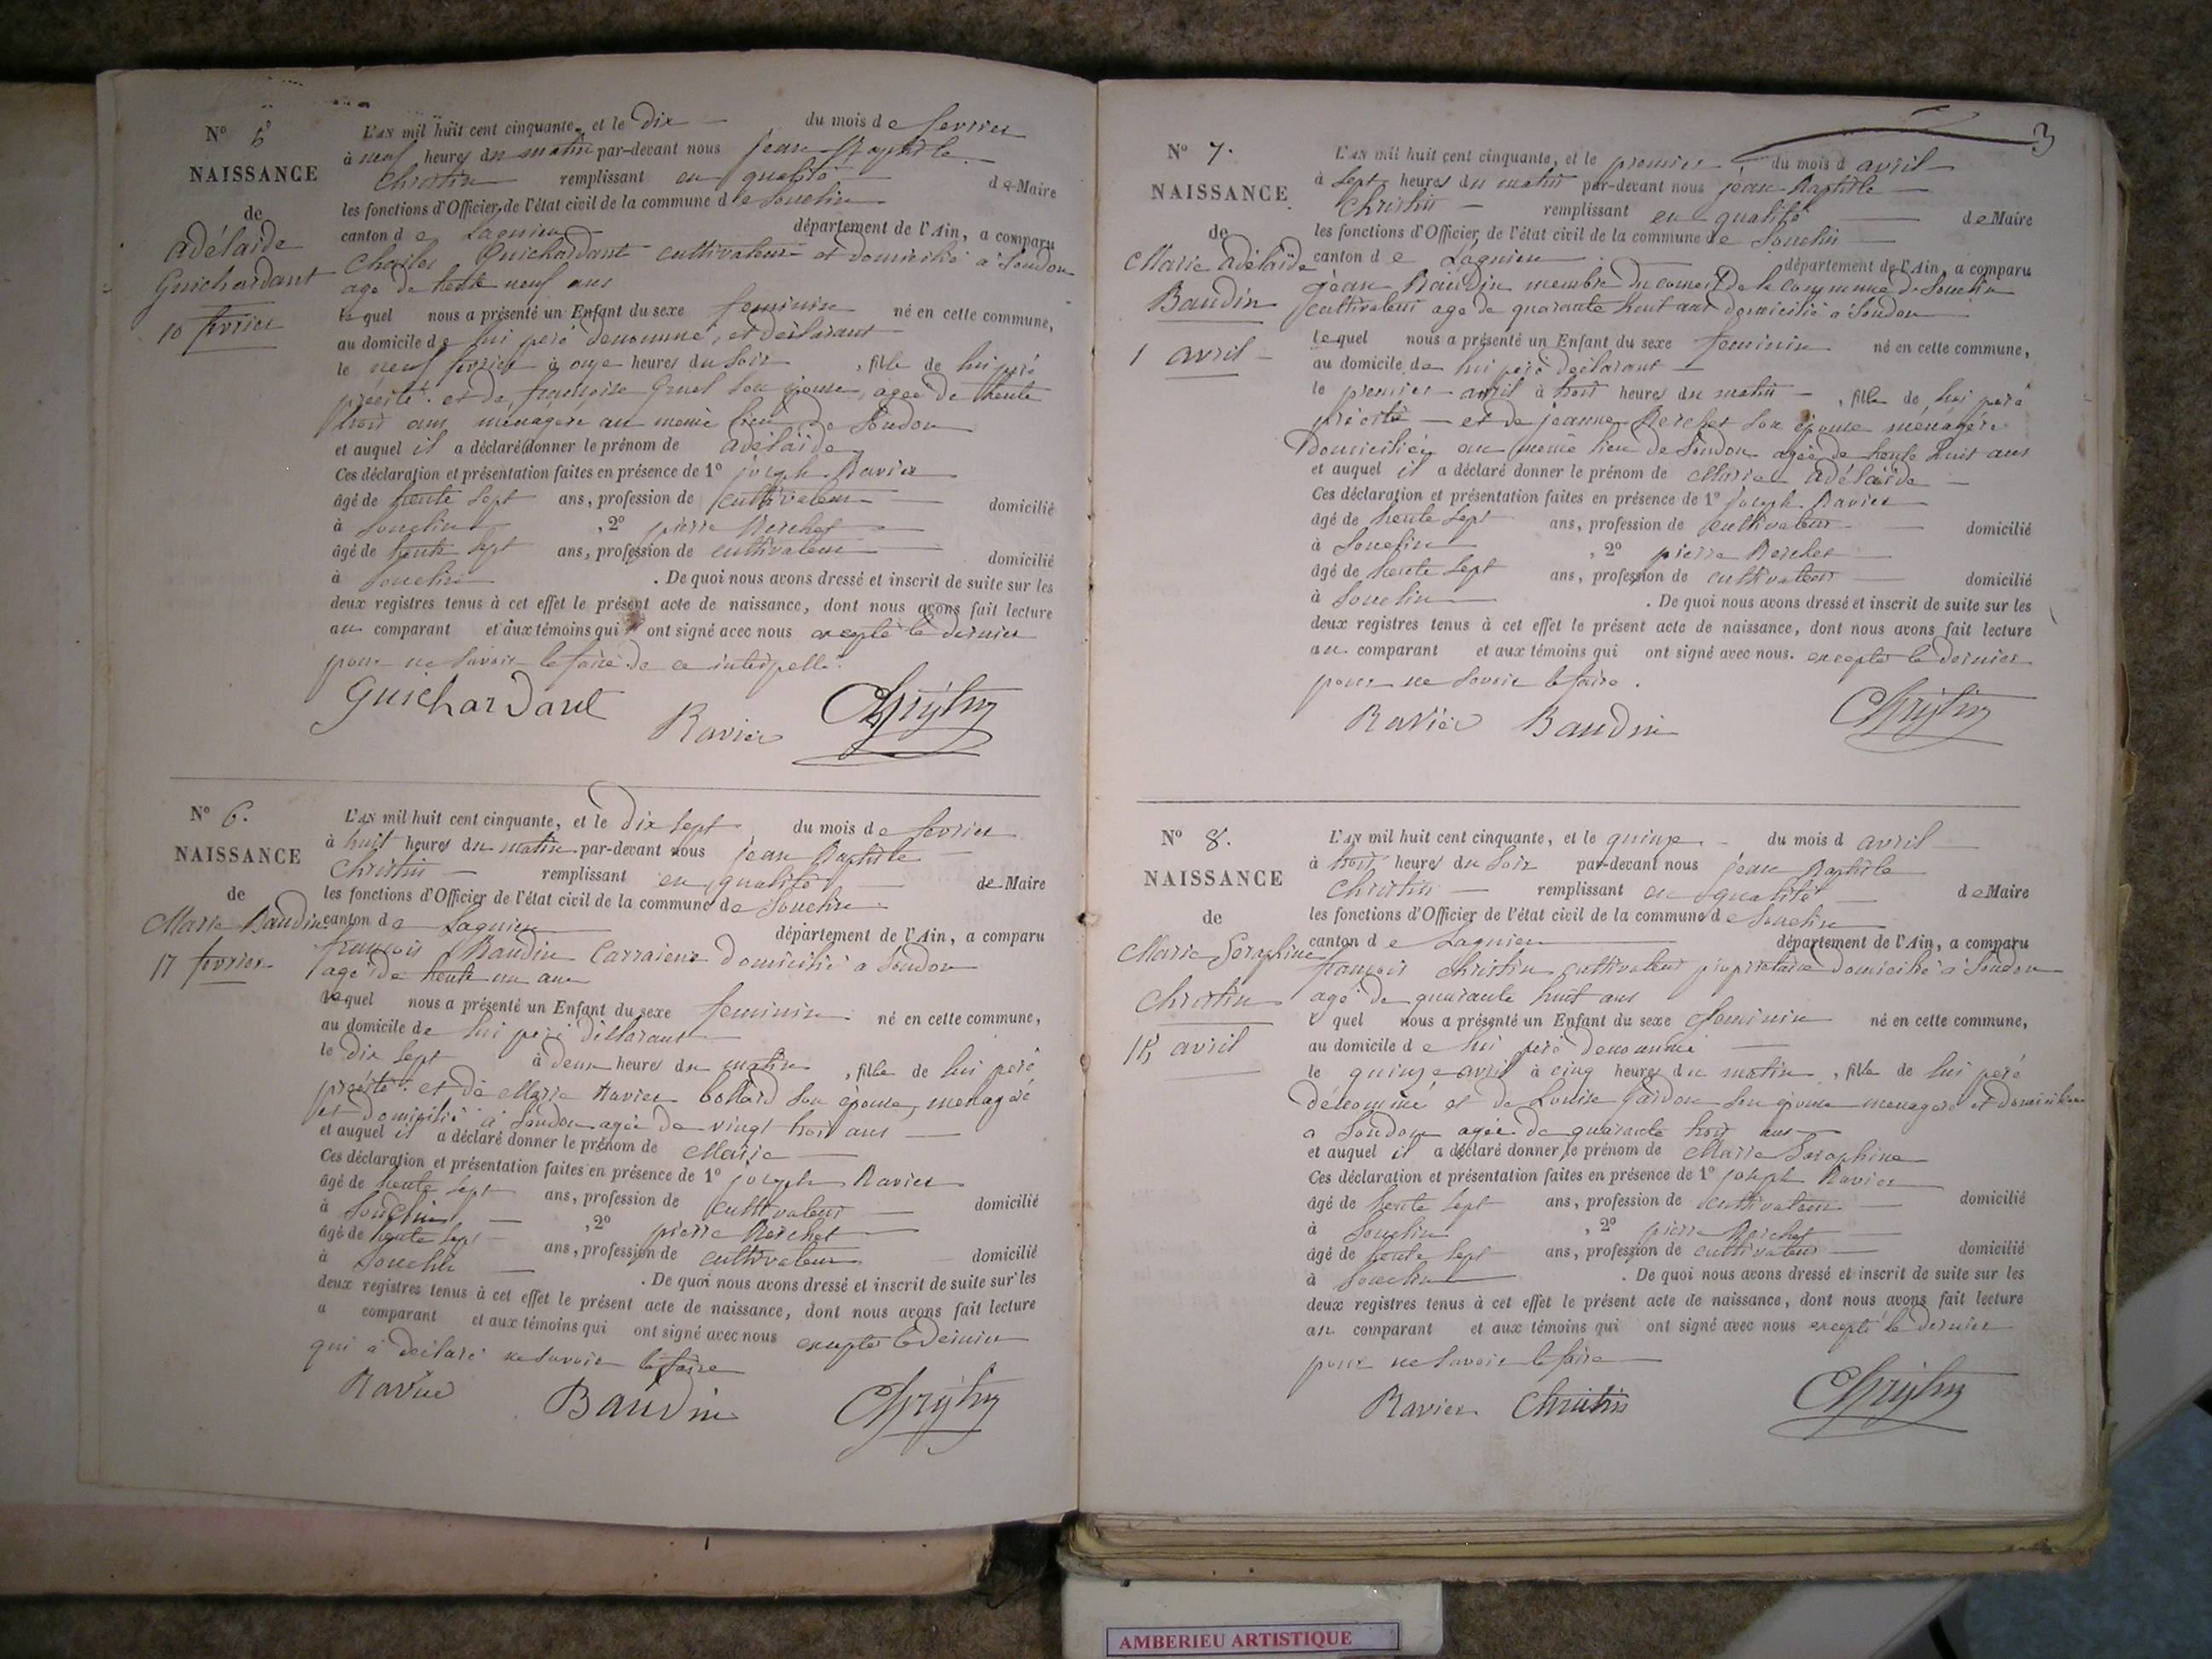 N° 5
NAISSANCE
de
adélaide
Guichardant
10 fevrier
L'AN mil huit cent cinquante, et le Dix du mois de fevrier
à neuf heures du matin par-devant nous jean Baptiste
Christin remplissant en qualité de Maire
les fonctions d'Officier de l'état civil de la commune de Souclin
canton de Lagnieu département de l'Ain, a comparu
Charles Guichardant cultivateur et domicilié a Soudon
age de trente neuf ans
lequel nous a présenté un Enfant du sexe feminin né en cette commune,
au domicile de lui peré denommé, et déclarant
le neuf fevrier à onze heures du Soir, fille de lui peré
précité. et de françoise Gruel son épouse, agée de trente
trois ans ménagère au meme lieu de Soudon
et auquel il a déclaré donner le prénom de adélaïde
Ces déclaration et présentation faites en présence de 1° joseph Ravier
âgé de trente sept ans, profession de cultivateur domicilié
à Souclin, 2° pierre Berchet
âgé de trente sept ans, profession de cultivateur domicilié
à Souclin. De quoi nous avons dressé et inscrit de suite sur les
deux registres tenus à cet effet le présent acte de naissance, dont nous avons fait lecture
au comparant et aux témoins qui ont signé avec nous excepté le dernier
pour ne Savoir le faire de ce interpellé.
Guichardant Ravier Christin
N° 6.
NAISSANCE
de
Marie Baudin
17 fevrier
L'AN mil huit cent cinquante, et le Dix Sept du mois de fevrier
à huit heures du matin par-devant nous jean Baptiste
Christin remplissant en qualité de Maire
les fonctions d'Officier de l'état civil de la commune de Souclin
canton de Lagnieu département de l'Ain, a comparu
françois Baudin Carraieur Domicilié a Soudon
agé de trente un ans
lequel nous a présenté un Enfant du sexe feminin né en cette commune,
au domicile de lui peré déclarant
le dix Sept à deux heures du matin, fille de lui peré
précité. et de Marie Ravier bottard son épouse, menagéré
et domicilié à Soudon agée de vingt trois ans
et auquel il a déclaré donner le prénom de Marie
Ces déclaration et présentation faites en présence de 1° joseph Ravier
âgé de trente sept ans, profession de cultivateur domicilié
à Souclin, 2° pierre Berchet
âgé de trente sept ans, profession de cultivateur domicilié
à Souclin. De quoi nous avons dressé et inscrit de suite sur les
deux registres tenus à cet effet le présent acte de naissance, dont nous avons fait lecture
a comparant et aux témoins qui ont signé avec nous excepté le Dernier
qui a déclaré ne Savoir le faire
Ravier Baudin Christin
3
N° 7.
NAISSANCE
de
Marie adélaïde
Baudin
1 avril
L'AN mil huit cent cinquante, et le premier du mois d avril
à Sept heures du matin par-devant nous jean Baptiste
Christin remplissant en qualité de Maire
les fonctions d'Officier de l'état civil de la commune de Souclin
canton de Lagnieu département de l'Ain, a comparu
jean Baudin membre du conseil de la commune de Souclin
cultivateur age de quarante huit ans domicilié a Soudon
lequel nous a présenté un Enfant du sexe feminin né en cette commune,
au domicile de lui peré déclarant
le premier avril à trois heures du matin, fille de lui peré
précité et de jeanne Berchet son épouse ménagéré
Domiciliée au meme lieu de Soudon agée de trente huit ans
et auquel il a déclaré donner le prénom de Marie Adélaïde
Ces déclaration et présentation faites en présence de 1° joseph Ravier
âgé de trente sept ans, profession de cultivateur domicilié
à Souclin, 2° pierre Berchet
âgé de trente sept ans, profession de cultivateur domicilié
à Souclin. De quoi nous avons dressé et inscrit de suite sur les
deux registres tenus à cet effet le présent acte de naissance, dont nous avons fait lecture
au comparant et aux témoins qui ont signé avec nous. excepté le dernier
pour ne Savoir le faire.
Ravier Baudin Christin
N° 8.
NAISSANCE
de
Marie Seraphine
Christin
15 avril
L'AN mil huit cent cinquante, et le quinze du mois d avril
à trois heures du Soir par-devant nous jean Baptiste
Christin remplissant en qualité de Maire
les fonctions d'Officier de l'état civil de la commune de Souclin
canton de Lagnieu département de l'Ain, a comparu
françois Christin cultivateur propriétaire domicilié à Soudon
agé de quarante huit ans
lequel nous a présenté un Enfant du sexe feminin né en cette commune,
au domicile de lui peré denommé
le quinze avril à cinq heures du matin, fille de lui peré
dénommé et de Louise jardon son épouse menagere et domiciliée
a Soudon agée de quarante trois ans
et auquel il a déclaré donner le prénom de Marie Seraphine
Ces déclaration et présentation faites en présence de 1° joseph Ravier
âgé de trente sept ans, profession de cultivateur domicilié
à Souclin, 2° pierre Berchet
âgé de trente sept ans, profession de cultivateur domicilié
à Souclin. De quoi nous avons dressé et inscrit de suite sur les
deux registres tenus à cet effet le présent acte de naissance, dont nous avons fait lecture
au comparant et aux témoins qui ont signé avec nous excepté le dernier
pour ne Savoir le faire
Ravier Christin Christin
AMBERIEU ARTISTIQUE